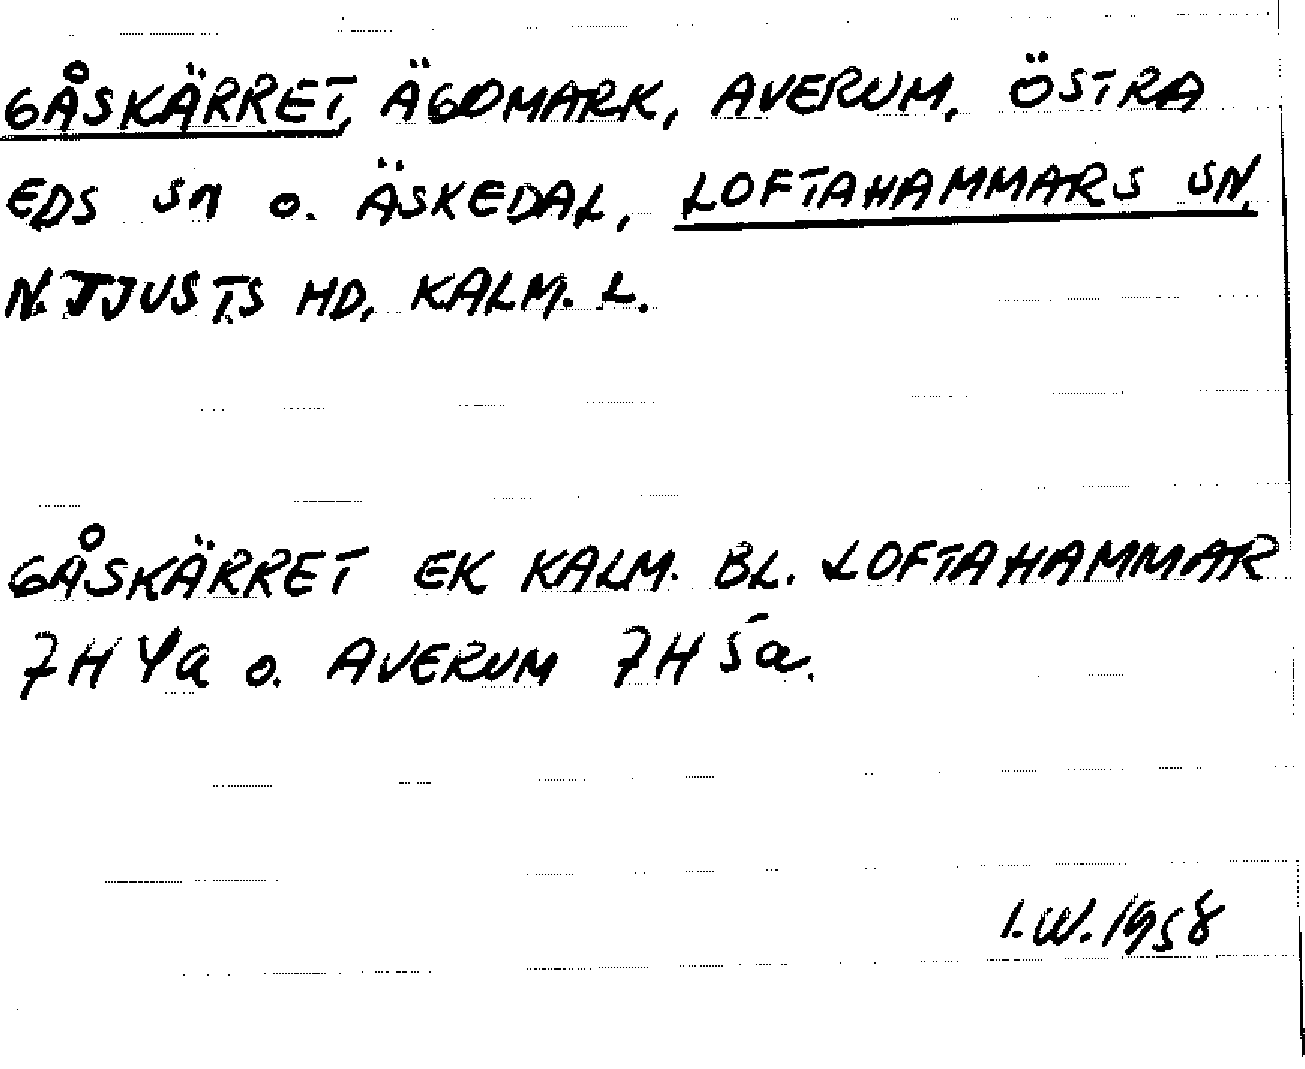 GÅSKÄRRET, ÄGOMARK, AVERUM, ÖSTRA
EDS SN O. ÄSKEDAL, LOFTAHAMMARS SN,
N. TJUSTS HD, KALM. L.
GÅSKÄRRET EK KALM. BL. LOFTAHAMMAR
7H 4a O. AVERUM 7H 5a.
I.W. 1958